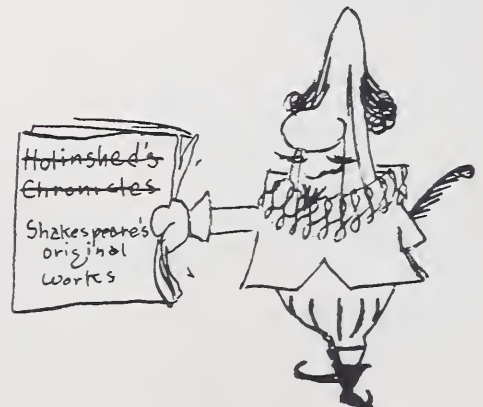 Holinshed's
Chronicles
Shakespeare's
original
works